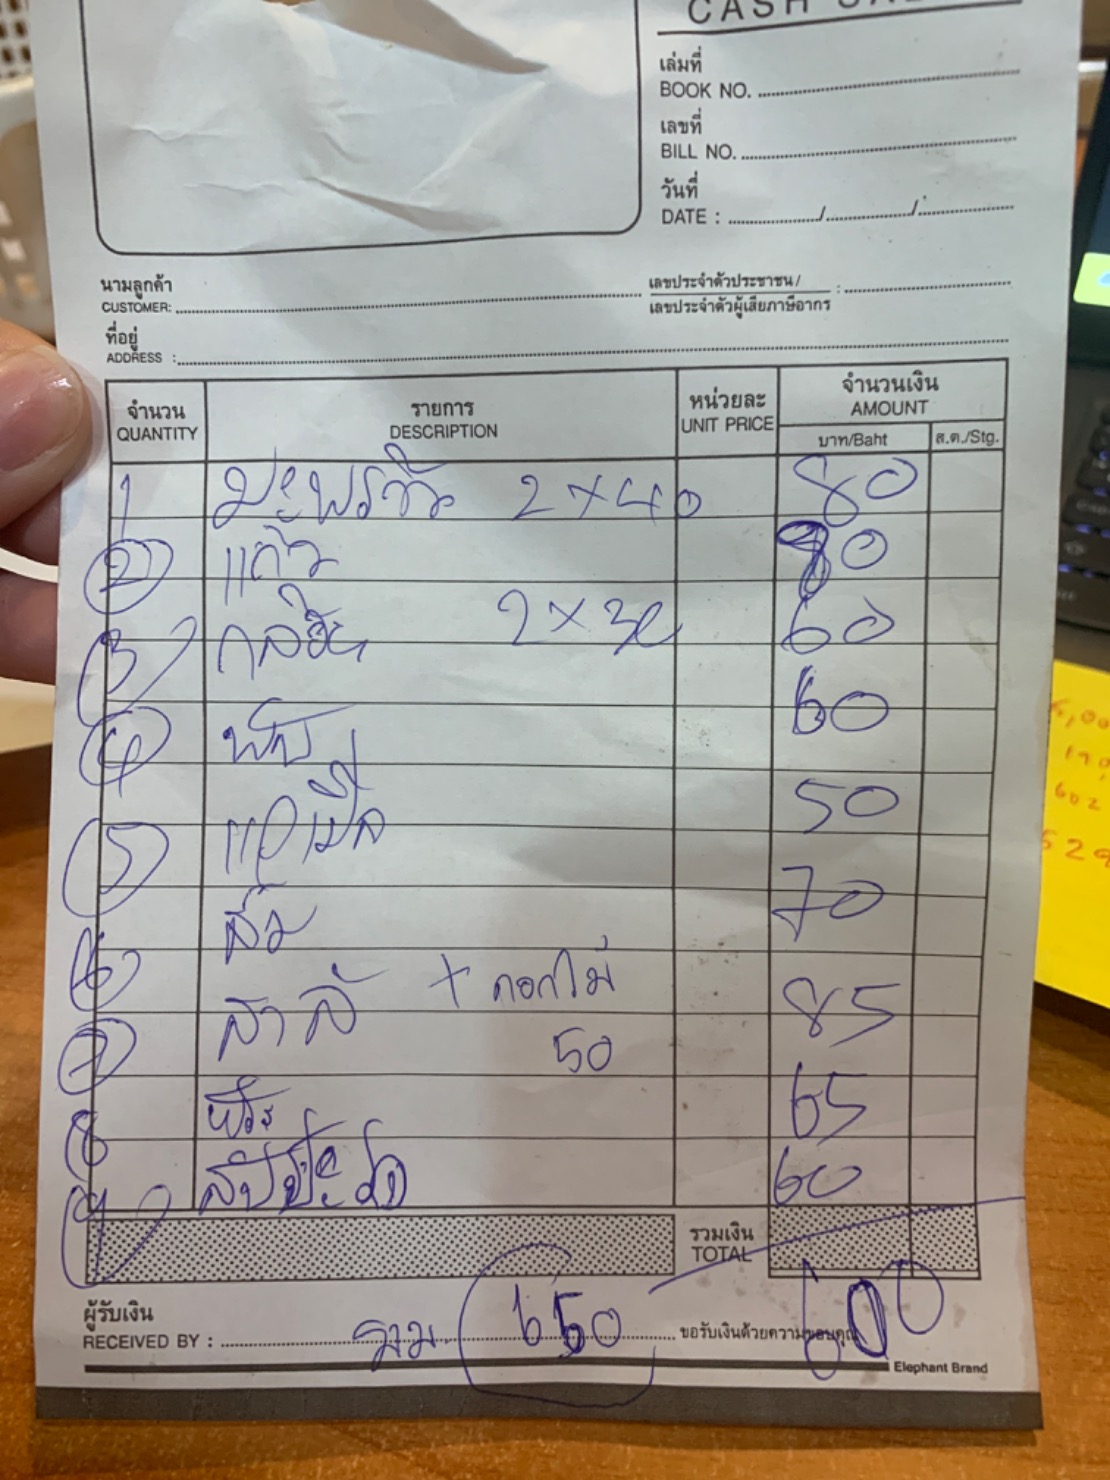 CASH
เล่มที่
BOOK NO.
เลขที่
BILL NO.
วันที่
DATE : / /
นามลูกค้า
CUSTOMER:
เลขประจำตัวประชาชน /
เลขประจำตัวผู้เสียภาษีอากร :
ที่อยู่
ADDRESS :
จำนวน รายการ หน่วยละ จำนวนเงิน
QUANTITY DESCRIPTION UNIT PRICE AMOUNT
บาท/Baht ส.ต./Stg.
1 มะพร้าว 2 x 40 80
2 แก้ว 80
3 2 x 30 60
4 60
5 แอปเปิ้ล 50
6 ส้ม 70
7 สาลี่ + ดอกไม้ 85
50
8 65
9 สับปะรด 60
รวมเงิน
TOTAL
600
ผู้รับเงิน
RECEIVED BY : รวม 650 ขอรับเงินด้วยความขอบคุณ
Elephant Brand